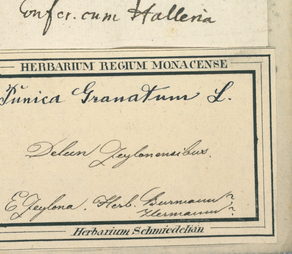 Confer. cum Halleria
HERBARIUM REGIUM MONACENSE
Punica Granatum L.
Delun Zeylonensibus.
E Zeylona. Herb. Burmann?
Hermann?
Herbarium Schmiedelian